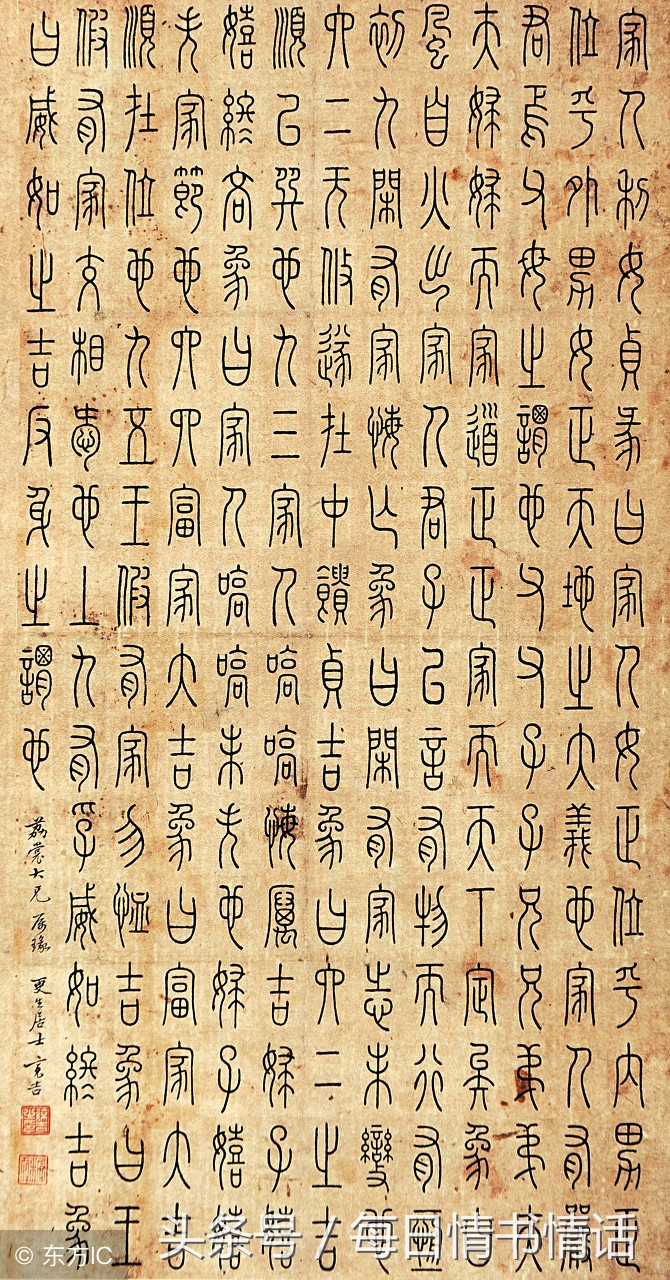 家人利女貞彖曰家人女正位乎內男正
位乎外男女正天地之大義也家人有嚴
君焉父母之謂也父父子子兄兄弟弟夫
夫婦婦而家道正正家而天下定矣象曰
風自火出家人君子以言有物而行有恆
初九閑有家悔亡象曰閑有家志未變也
六二无攸遂在中饋貞吉象曰六二之吉
順以巽也九三家人嗃嗃悔厲吉婦子嬉
嬉終吝象曰家人嗃嗃未失也婦子嬉嬉
失家節也六四富家大吉象曰富家大吉
順在位也九五王假有家勿恤吉象曰王
假有家交相愛也上九有孚威如終吉象
曰威如之吉反身之謂也
荔裳大兄属 更生居士亮吉
头条号 / 每日情书情话
© 东方IC